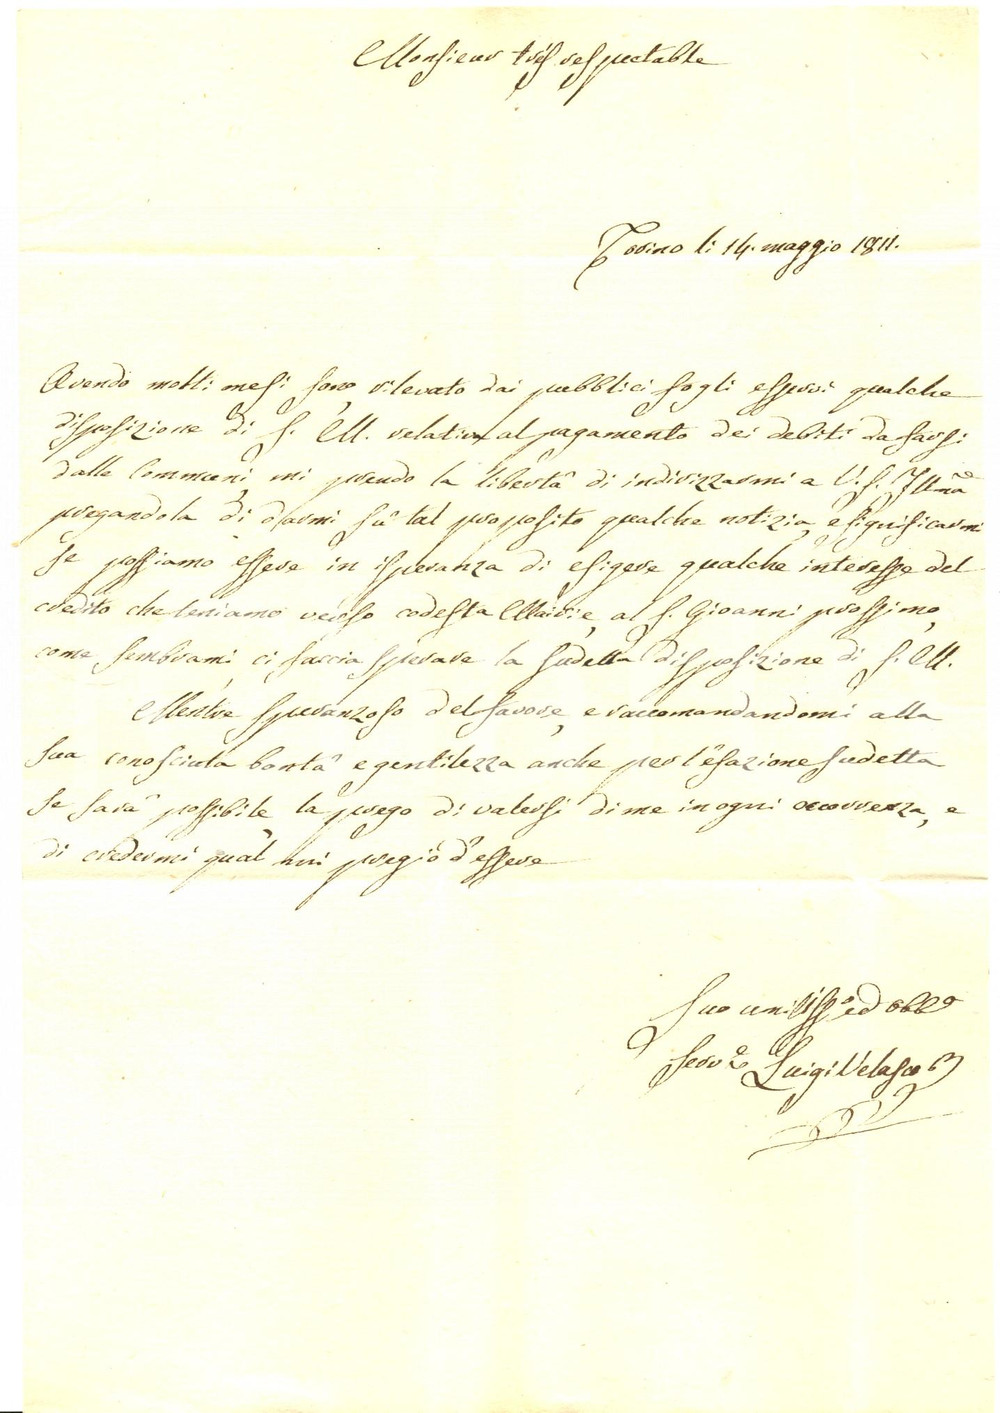 Monsieur très respectable
Torino li 14. maggio 1811.
Avendo molti mesi sono, rilevato dai pubblici fogli esservi qualche
disposizione di S. M. relativa al pagamento dei debiti da farsi
dalle Communi, mi prendo la libertà di indirizzarmi a V. S. Ill.ma
pregandola di darmi sù tal proposito qualche notizia, e significarmi
se possiamo essere in isperanza di esigere qualche interesse del
credito che teniamo verso codesta Mairie, al S. Gioanni prossimo,
come sembrami, ci faccia sperare la sudetta disposizione di S. M.
Mentre speranzoso del favore, e raccomandandomi alla
sua conosciuta bontà e gentilezza anche per l'esazione sudetta
se sarà possibile la prego di valersi di me in ogni occorrenza, e
di credermi qual mi pregio d'essere
Suo umiliss.o ed obb.o
Serv.e Luigi Velasco